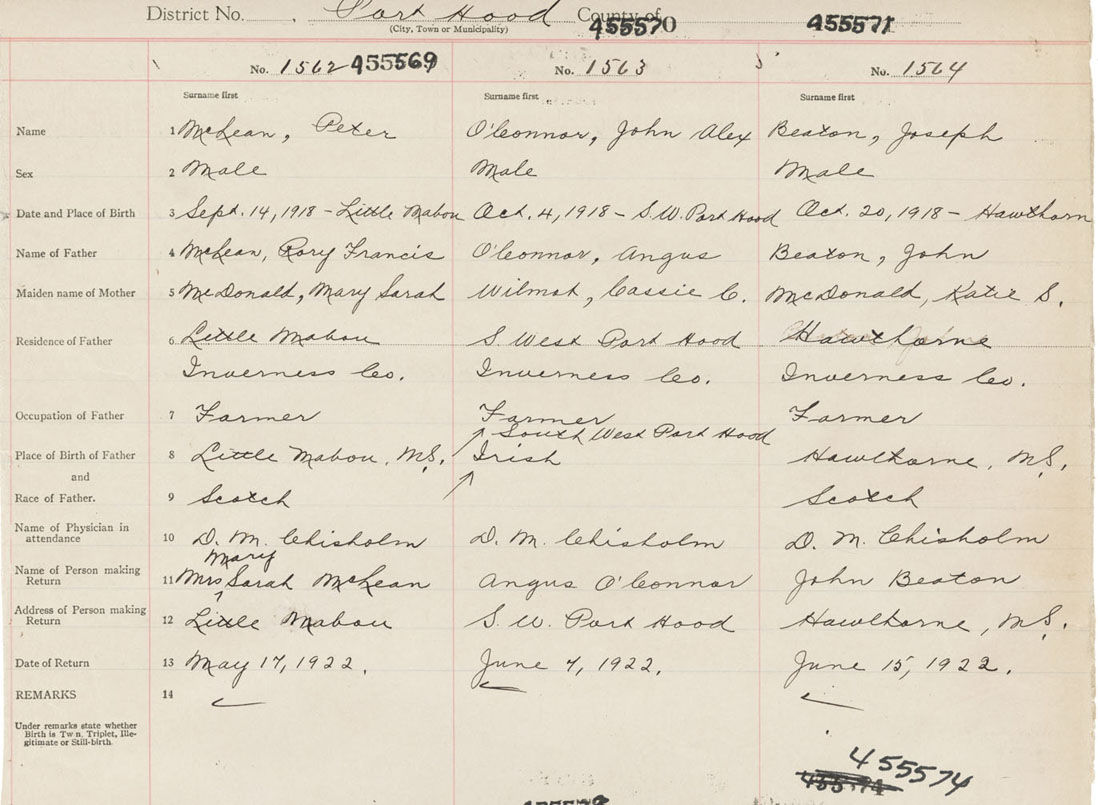 District No. Port Hood County of
(City, Town or Municipality)
455570
455571
No. 1562 455569 No. 1563 No. 1564
Surname first Surname first Surname first
Name 1 McLean, Peter O'Connor, John Alex Beaton, Joseph
Sex 2 Male Male Male
Date and Place of Birth 3 Sept. 14, 1918 - Little Mabou Oct. 4, 1918 - S.W. Port Hood Oct. 20, 1918 - Hawthorn
Name of Father 4 McLean, Rory Francis O'Connor, Angus Beaton, John
Maiden name of Mother 5 McDonald, Mary Sarah Wilmot, Cassie C. McDonald, Katie S.
Residence of Father 6 Little Mabou S. West Port Hood Hawthorne
Inverness Co. Inverness Co. Inverness Co.
Occupation of Father 7 Farmer Farmer Farmer
South West Port Hood
Place of Birth of Father 8 Little Mabou, N.S. Irish Hawthorne, N.S.
and
Race of Father. 9 Scotch Scotch
Name of Physician in
attendance 10 D. M. Chisholm D. M. Chisholm D. M. Chisholm
Mary
Name of Person making
Return 11 Mrs Sarah McLean Angus O'Connor John Beaton
Address of Person making
Return 12 Little Mabou S. W. Port Hood Hawthorne, N.S.
Date of Return 13 May 17, 1922. June 7, 1922. June 15, 1922.
REMARKS 14
Under remarks state whether
Birth is Twin, Triplet, Ille-
gitimate or Still-birth.
455574